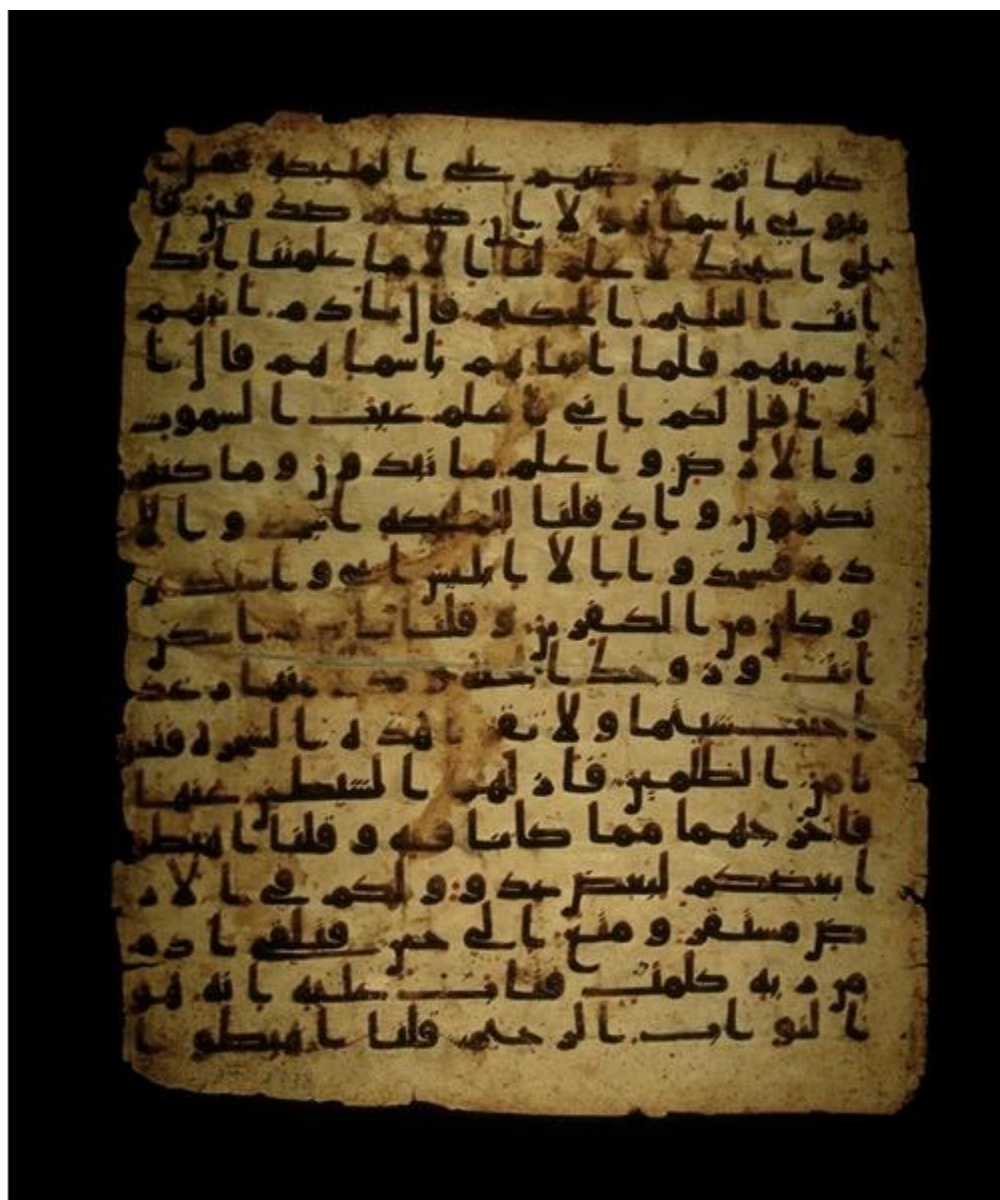 كلها ثم عرضهم على الملئكه فقال ا
نبوني باسما هولا ان كنتم صدقين قا
لوا سبحنك لا علم لنا الا ما علمتنا انك
انت العليم الحكيم قال يادم انبهم
باسميهم فلما انباهم باسماهم قال ا
لم اقل لكم اني اعلم غيب السموت
والارض واعلم ما تبدون وما كنتم
تكتمون واذ قلنا للملئكه اسجدوا لا
دم فسجدوا الا ابليس ابى واستكبر
وكان من الكفرين وقلنا يادم اسكن
انت وزوجك الجنه وكلا منها رغد
ا حيث شيتما ولا تقربا هذه الشجره فتكو
نا من الظلمين فازلهما الشيطن عنها
فاخرجهما مما كانا فيه وقلنا اهبطو
ا بعضكم لبعض عدو ولكم في الار
ض مستقر ومتع الى حين فتلقى ادم
من ربه كلمت فتاب عليه انه هو
التواب الرحيم قلنا اهبطوا